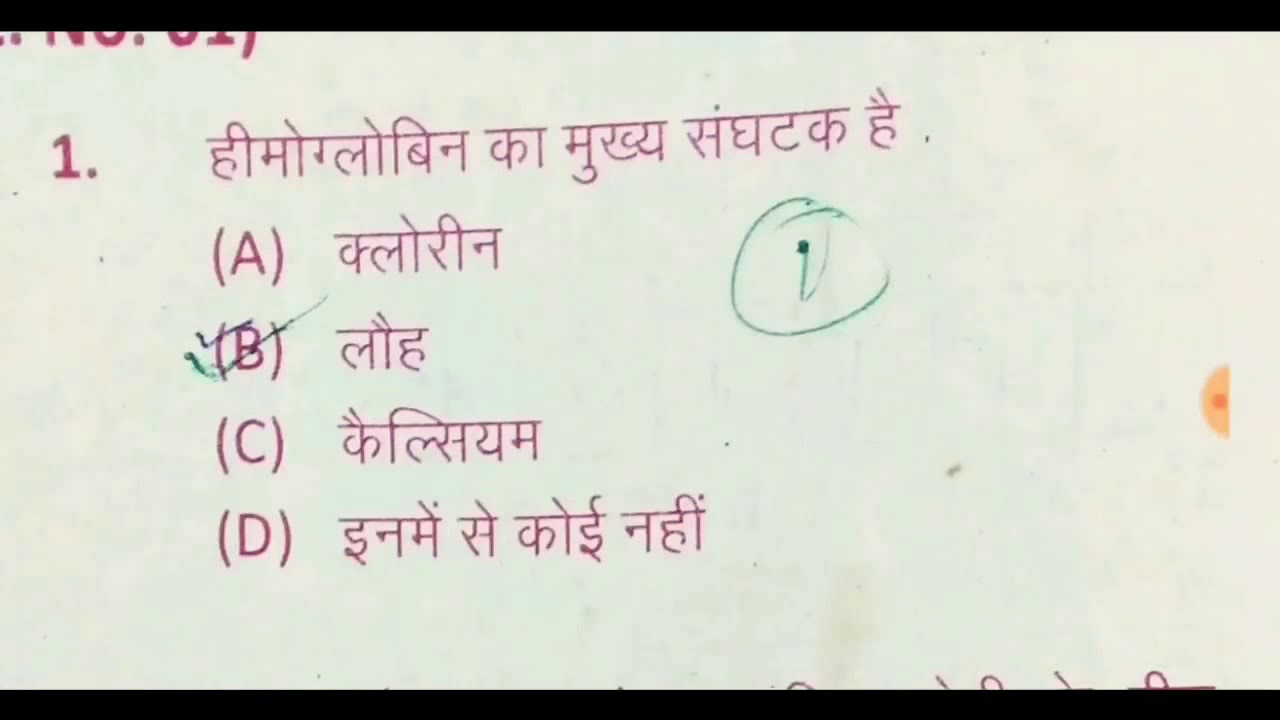 No. 01)
1. हीमोग्लोबिन का मुख्य संघटक है .
(A) क्लोरीन
(B) लौह
(C) कैल्सियम
(D) इनमें से कोई नहीं
1